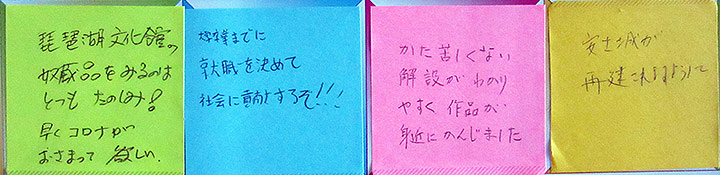 琵琶湖文化館の
収蔵品をみるのは
とっても たのしみ!
早くコロナが
おさまって 欲しい.
卒業までに
就職を決めて
社会に貢献するぞ!!!
かた苦しくない
解説がわかり
やすく 作品が
身近にかんじました
安土城が
再建されますように